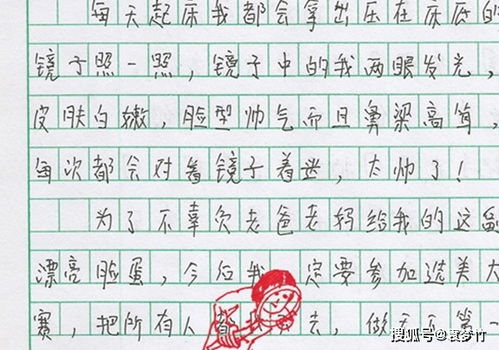 每天起床我都会拿出压在床底的
镜子照一照，镜子中的我两眼发光，
皮肤白嫩，脸型帅气而且鼻梁高耸，
每次都会对着镜子着迷，太帅了！
为了不辜负老爸老妈给我的这副
漂亮脸蛋，今后我一定要参加选美大
赛，把所有人都 去，做天下第一
搜狐号@